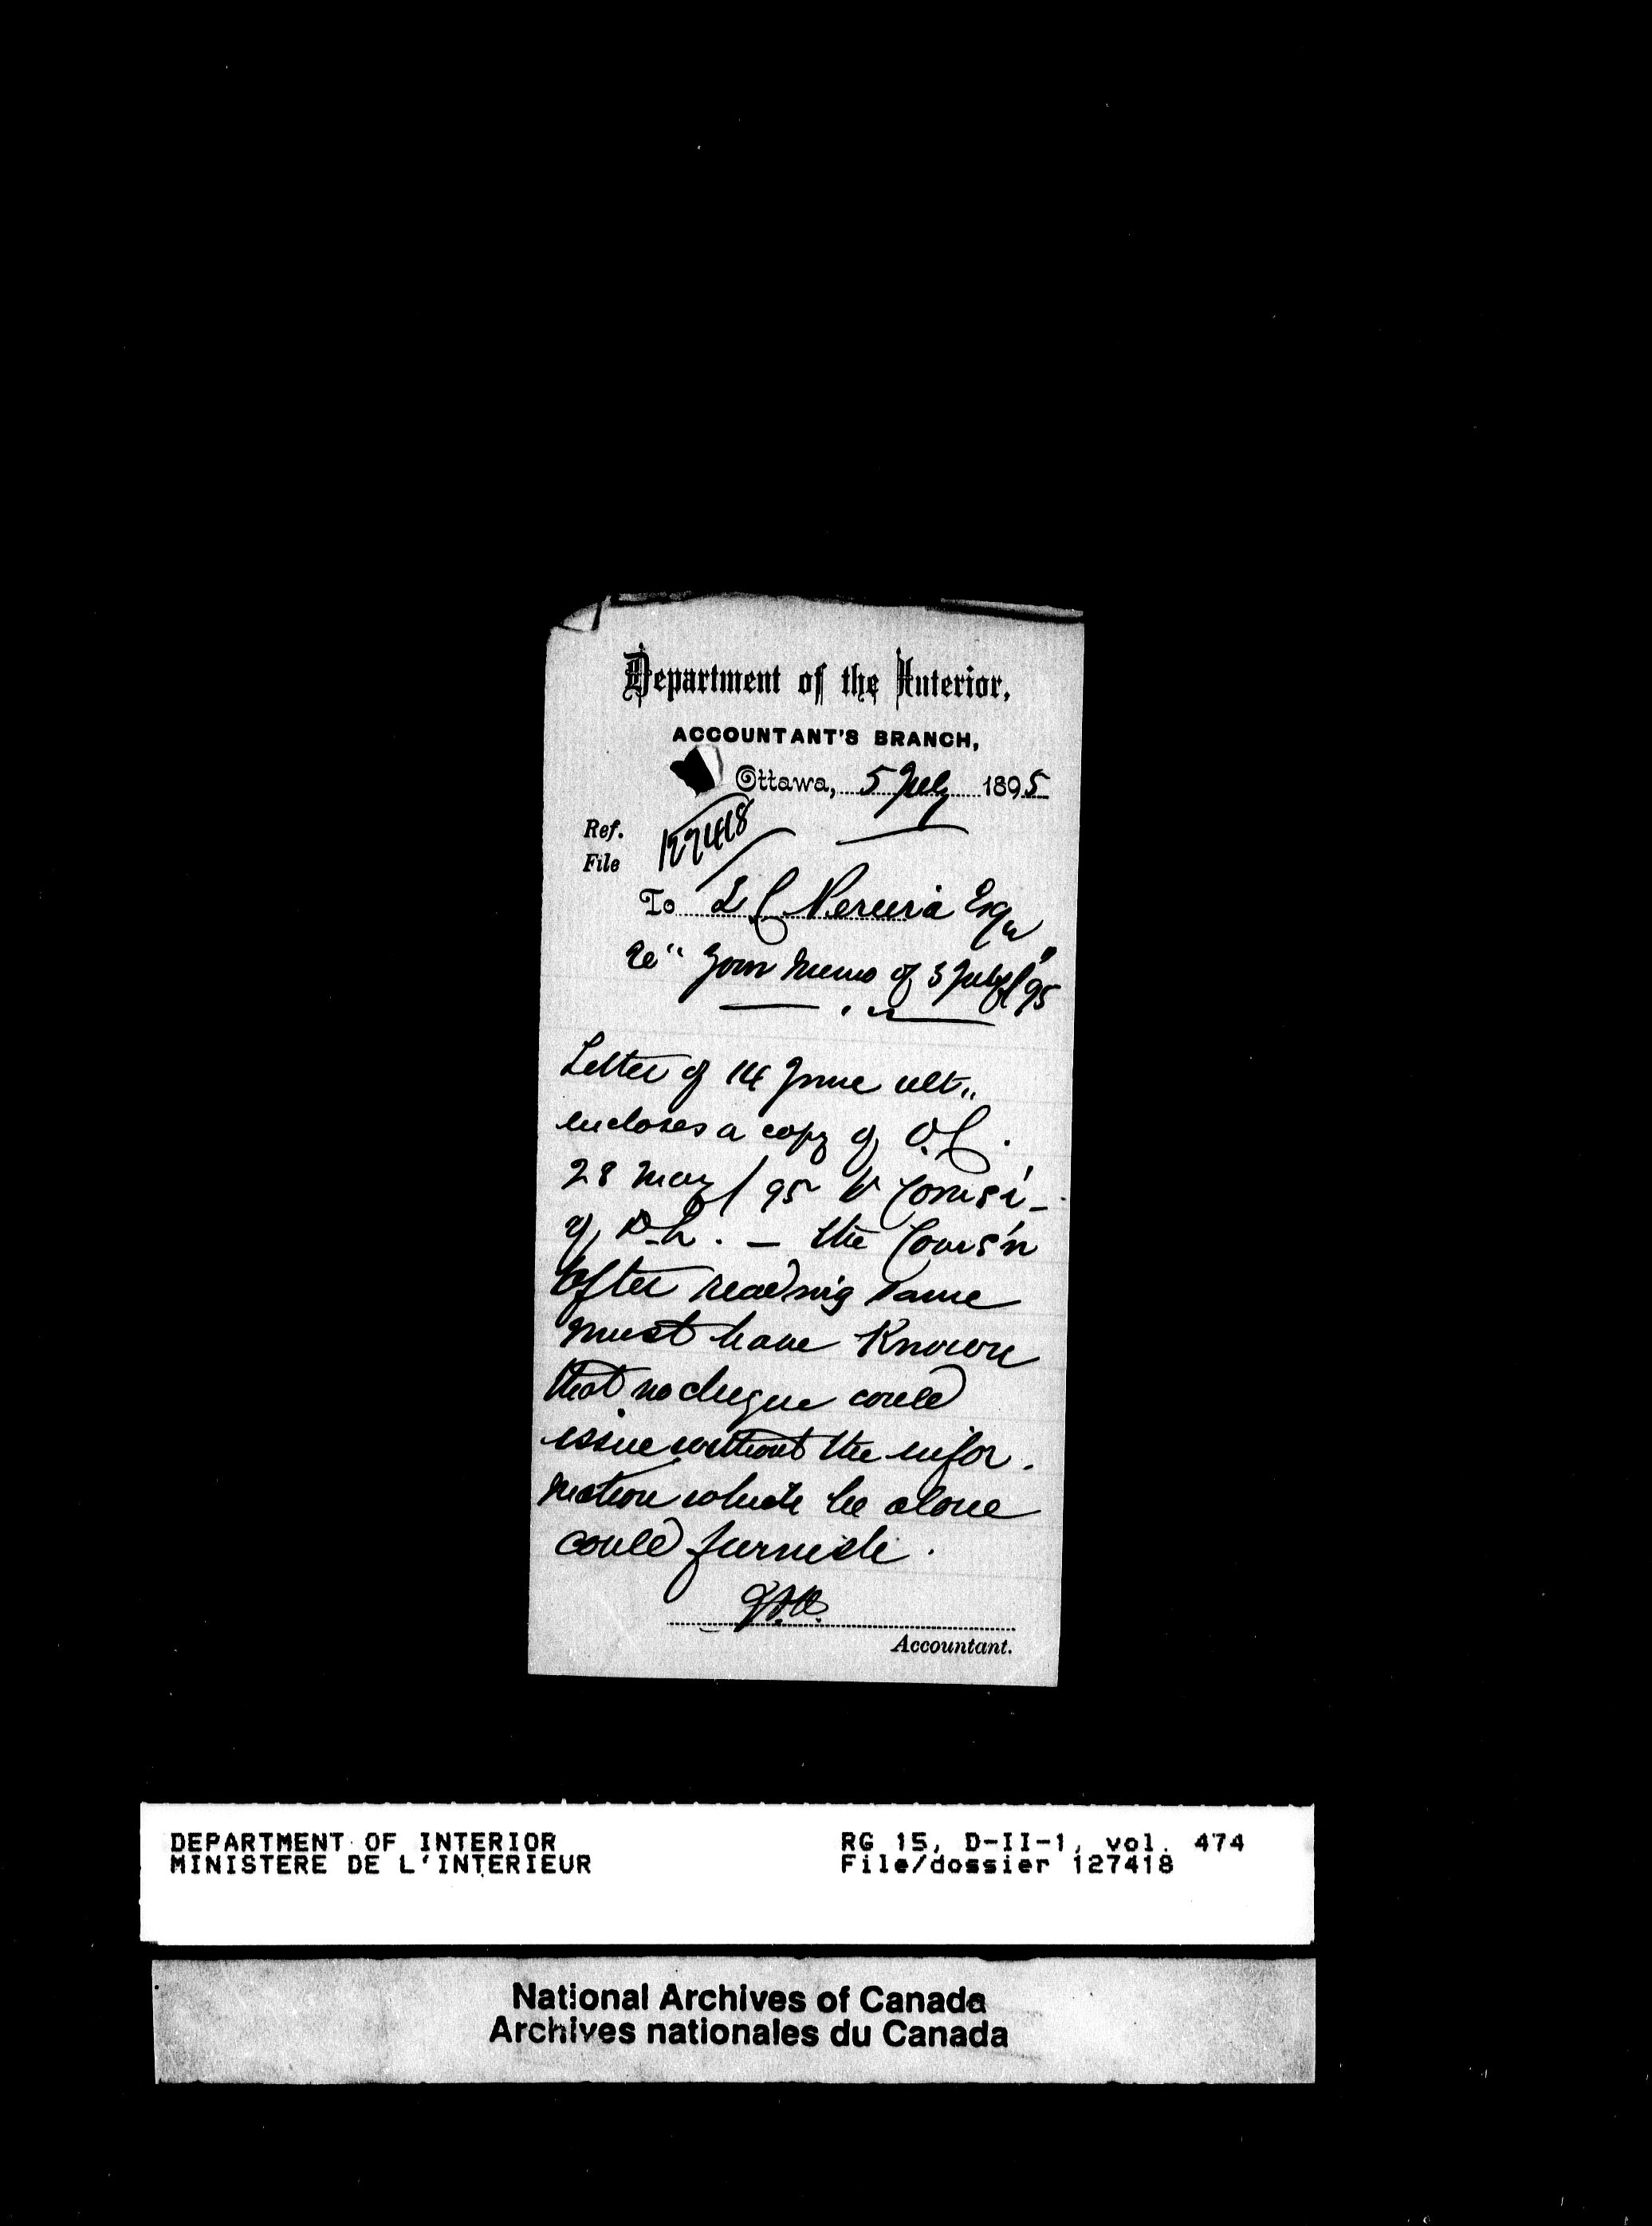 Department of the Interior,
ACCOUNTANT'S BRANCH,
Ottawa, 5 July 1895
Ref.
File 127418
To L C Pereira Esqr
re "Your memo of 3 July/95"
Letter of 14 June ult.,
encloses a copy of O.C.
28 May/95 to Comsr
of D.L. – the Comsn
after reading same
must have known
that no cheque could
issue without the infor-
mation which he alone
could furnish.
Accountant.
DEPARTMENT OF INTERIOR
MINISTERE DE L'INTERIEUR
RG 15, D-II-1, vol. 474
File/dossier 127418
National Archives of Canada
Archives nationales du Canada